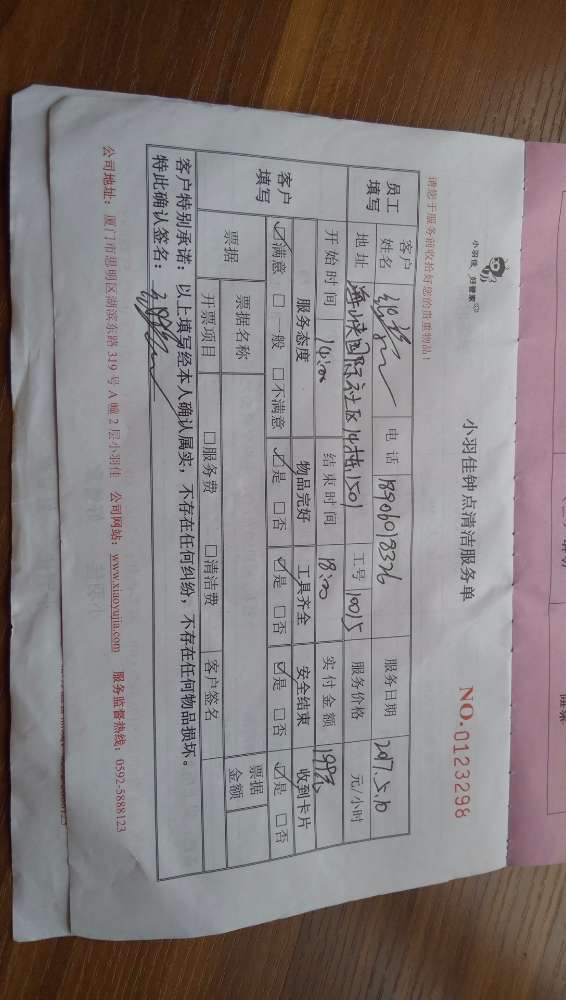 小羽佳 好管家
小羽佳钟点清洁服务单
NO.0123298
请您于服务前收拾好您的贵重物品！
员工填写 客户姓名 电话 18906018326 服务日期 2017.5.10
地址 海峡国际社区14栋1501 工号 10015 服务价格 元/小时
开始时间 14:00 结束时间 18:00 实付金额
客户填写 服务态度 物品完好 工具齐全 安全结束 收到卡片
☑满意 □一般 □不满意 ☑是 □否 ☑是 □否 ☑是 □否 ☑是 □否
票据 票据名称 票据金额
开票项目 □服务费 □清洁费 客户签名
客户特别承诺：以上填写经本人确认属实，不存在任何纠纷，不存在任何物品损坏。
特此确认签名：
公司地址：厦门市思明区湖滨东路319号A幢2层小羽佳 公司网站：www.xiaoyujia.com 服务监督热线：0592-5888123